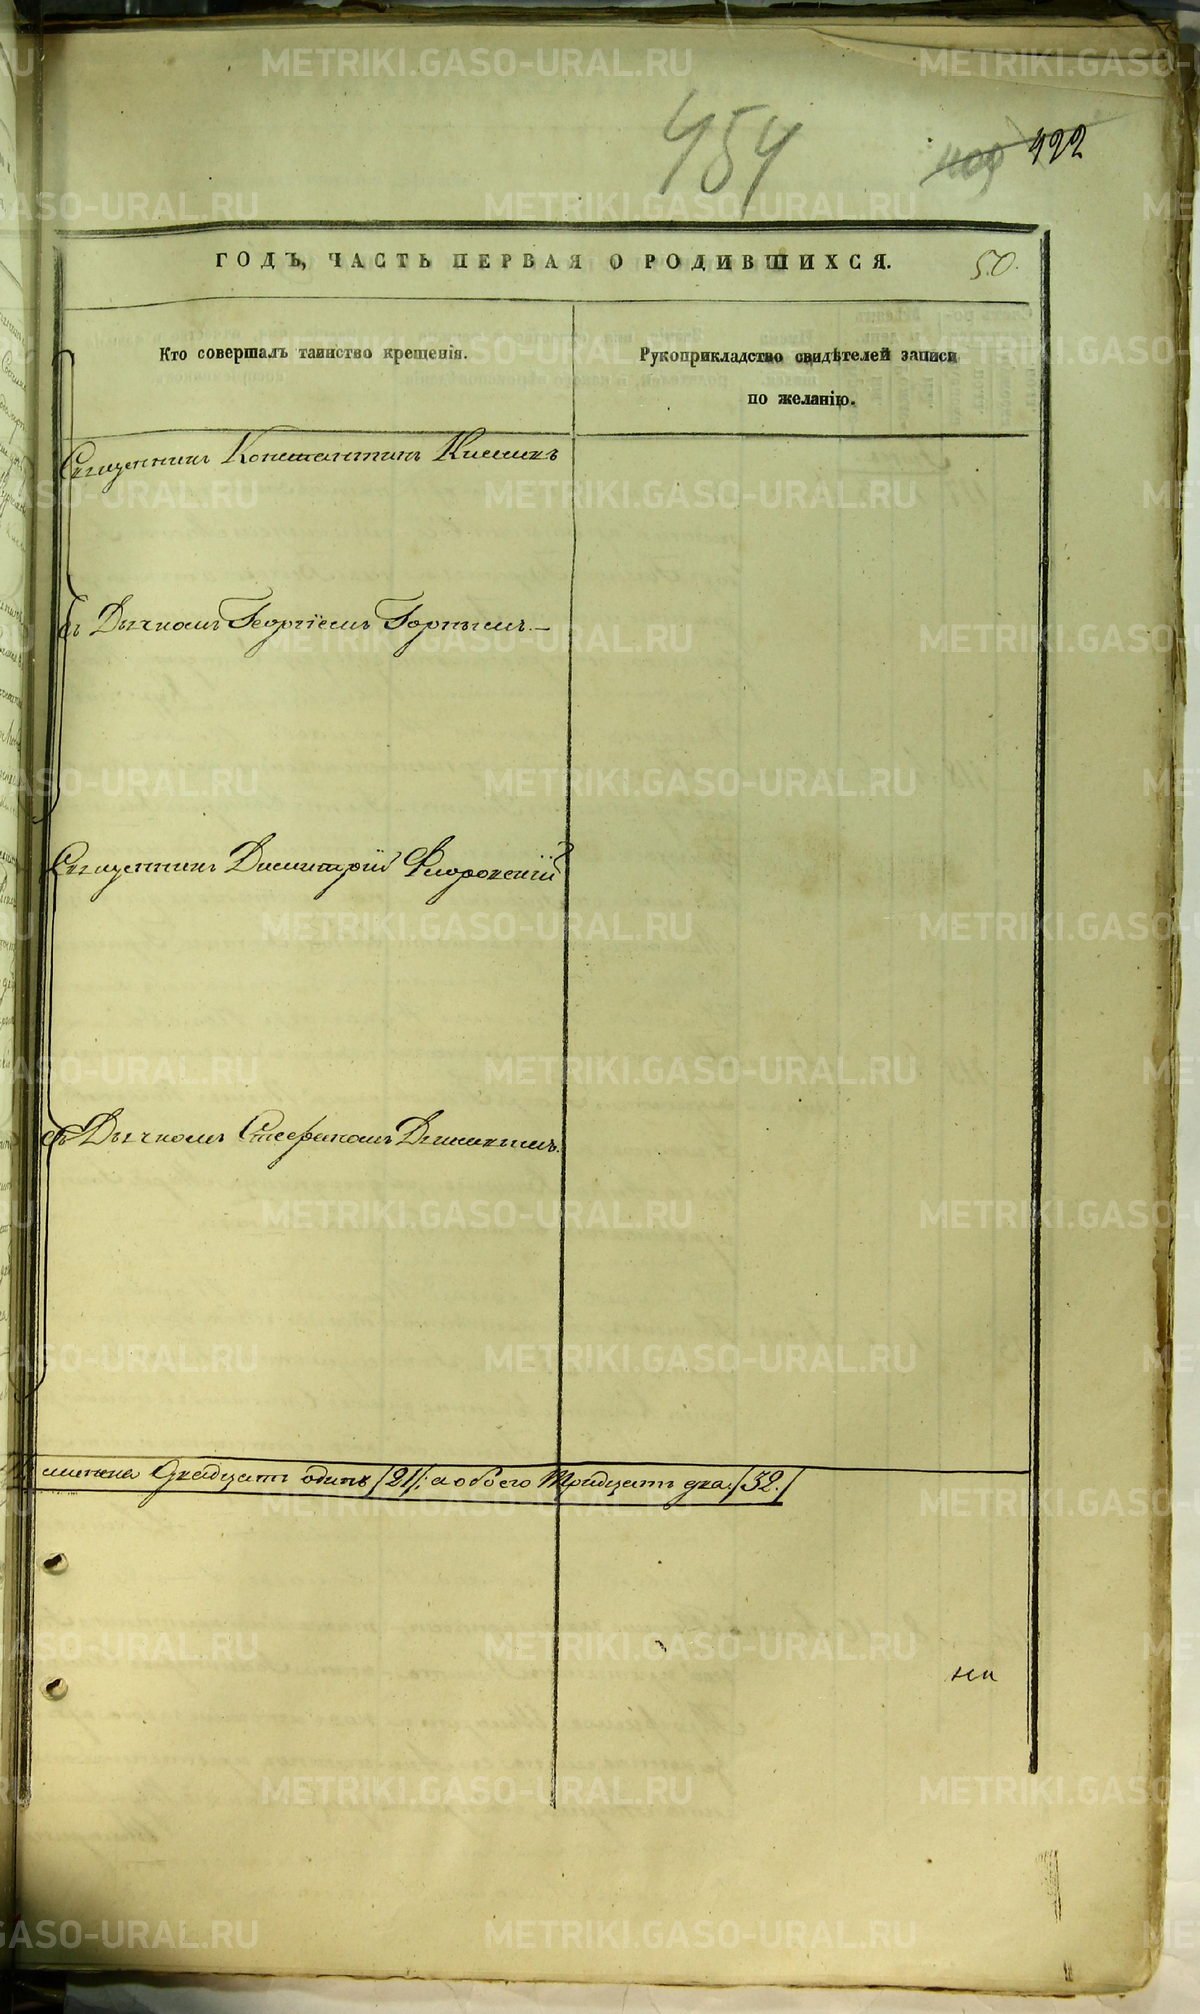 454
409 422
ГОДЪ, ЧАСТЬ ПЕРВАЯ О РОДИВШИХСЯ. 50.
Кто совершалъ таинство крещенія.
Рукоприкладство свидѣтелей записи
по желанію.
Священникъ Константинъ
съ Дьячкомъ Георгіемъ
Священникъ Димитрій Флоровскій
съ Дьячкомъ Стефаномъ
двадцать одинъ /21/; а обоего тридцать два. /32./
METRIKI.GASO-URAL.RU